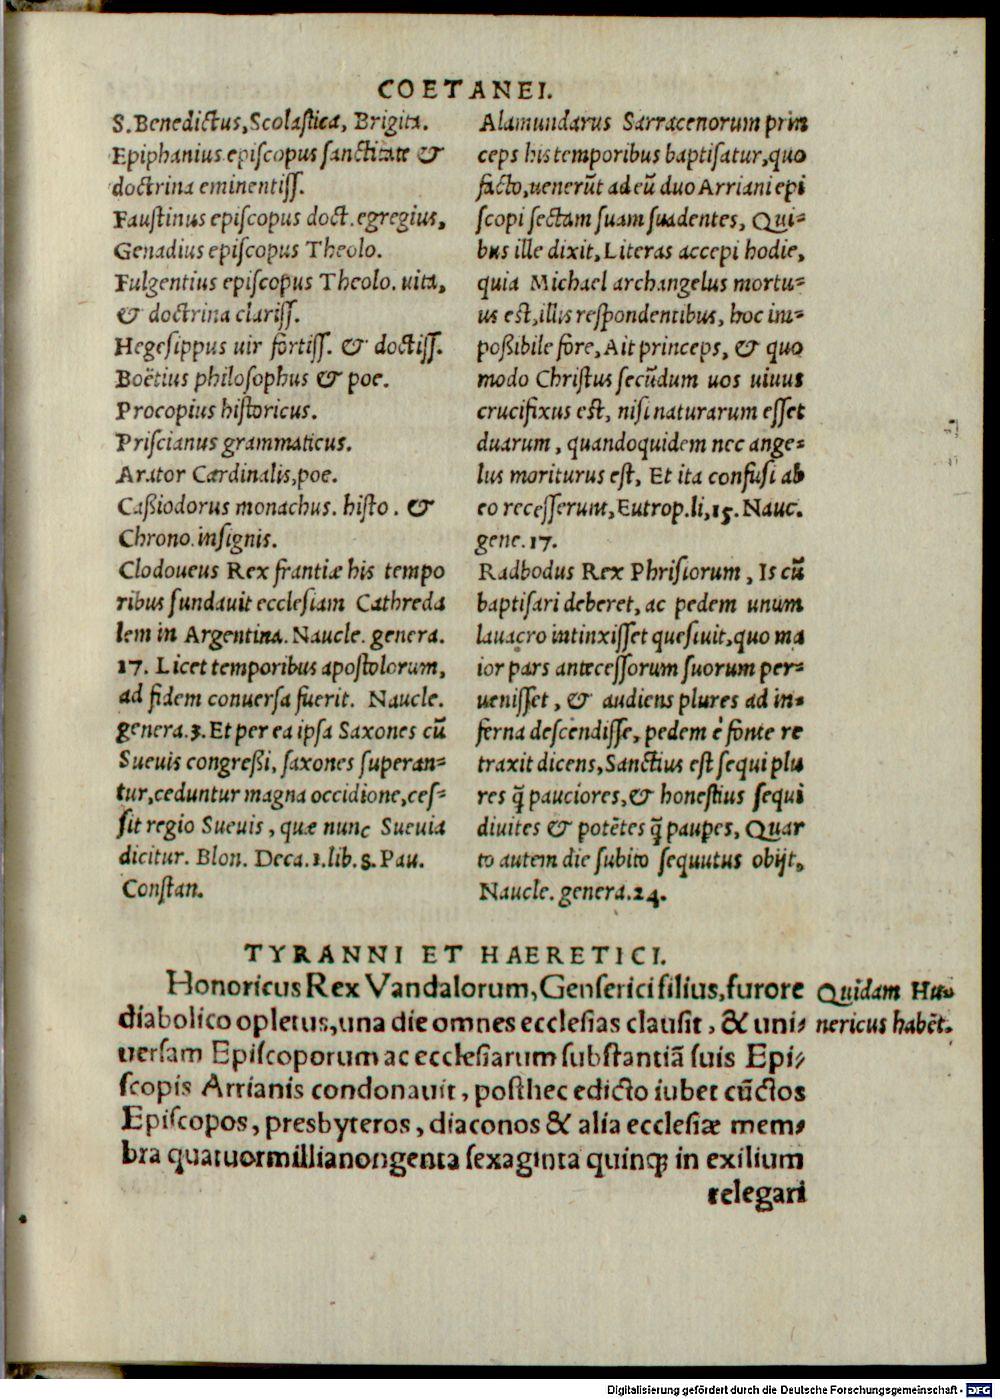 COETANEI.
S. Benedictus, Scolaſtica, Brigita.
Epiphanius epiſcopus ſanctitate &
doctrina eminentiſſ.
Fauſtinus epiſcopus doct. egregius,
Genadius epiſcopus Theolo.
Fulgentius epiſcopus Theolo. uita,
& doctrina clariſſ.
Hegeſippus uir fortiſſ. & doctiſſ.
Boëtius philoſophus & poe.
Procopius hiſtoricus.
Priſcianus grammaticus.
Arator Cardinalis, poe.
Caßiodorus monachus. hiſto. &
Chrono. inſignis.
Clodoueus Rex frantiæ his tempo
ribus fundauit eccleſiam Cathreda
lem in Argentina. Naucle. genera.
17. Licet temporibus apoſtolorum,
ad fidem conuerſa fuerit. Naucle.
genera. 3. Et per ea ipſa Saxones cũ
Sueuis congreßi, ſaxones ſuperan⸗
tur, ceduntur magna occidione, ceſ⸗
ſit regio Sueuis, quæ nunc Sueuia
dicitur. Blon. Deca. 1. lib. 8. Pau.
Conſtan.
Alamundarus Sarracenorum prin
ceps his temporibus baptiſatur, quo
facto, uenerũt ad eũ duo Arriani epi
ſcopi ſectam ſuam ſuadentes, Qui⸗
bus ille dixit, Literas accepi hodie,
quia Michael archangelus mortu⸗
us eſt, illis reſpondentibus, hoc im⸗
poßibile fore, Ait princeps, & quo
modo Chriſtus ſecũdum uos uiuus
crucifixus eſt, niſi naturarum eſſet
duarum, quandoquidem nec ange⸗
lus moriturus eſt, Et ita confuſi ab
eo receſſerunt, Eutrop. li, 15. Nauc.
gene. 17.
Radbodus Rex Phriſiorum, Is cũ
baptiſari deberet, ac pedem unum
lauacro intinxiſſet queſiuit, quo ma
ior pars anteceſſorum ſuorum per⸗
ueniſſet, & audiens plures ad in⸗
ferna deſcendiſſe, pedem è fonte re
traxit dicens, Sanctius eſt ſequi plu
res q̃ pauciores, & honeſtius ſequi
diuites & potẽtes q̃ paup̱es, Quar
to autem die ſubito ſequutus obijt,
Naucle. genera. 24.
TYRANNI ET HAERETICI.
Honoricus Rex Vandalorum, Genſerici filius, furore
diabolico opletus, una die omnes eccleſias clauſit, & uni⸗
uerſam Epiſcoporum ac eccleſiarum ſubſtantiã ſuis Epi⸗
ſcopis Arrianis condonauit, poſthec edicto iubet cũctos
Epiſcopos, presbyteros, diaconos & alia eccleſiæ mem⸗
bra quatuormillianongenta ſexaginta quinqꝫ in exilium
relegari
Quidam Hu⸗
nericus habẽt.
Digitalisierung gefördert durch die Deutsche Forschungsgemeinschaft - DFG